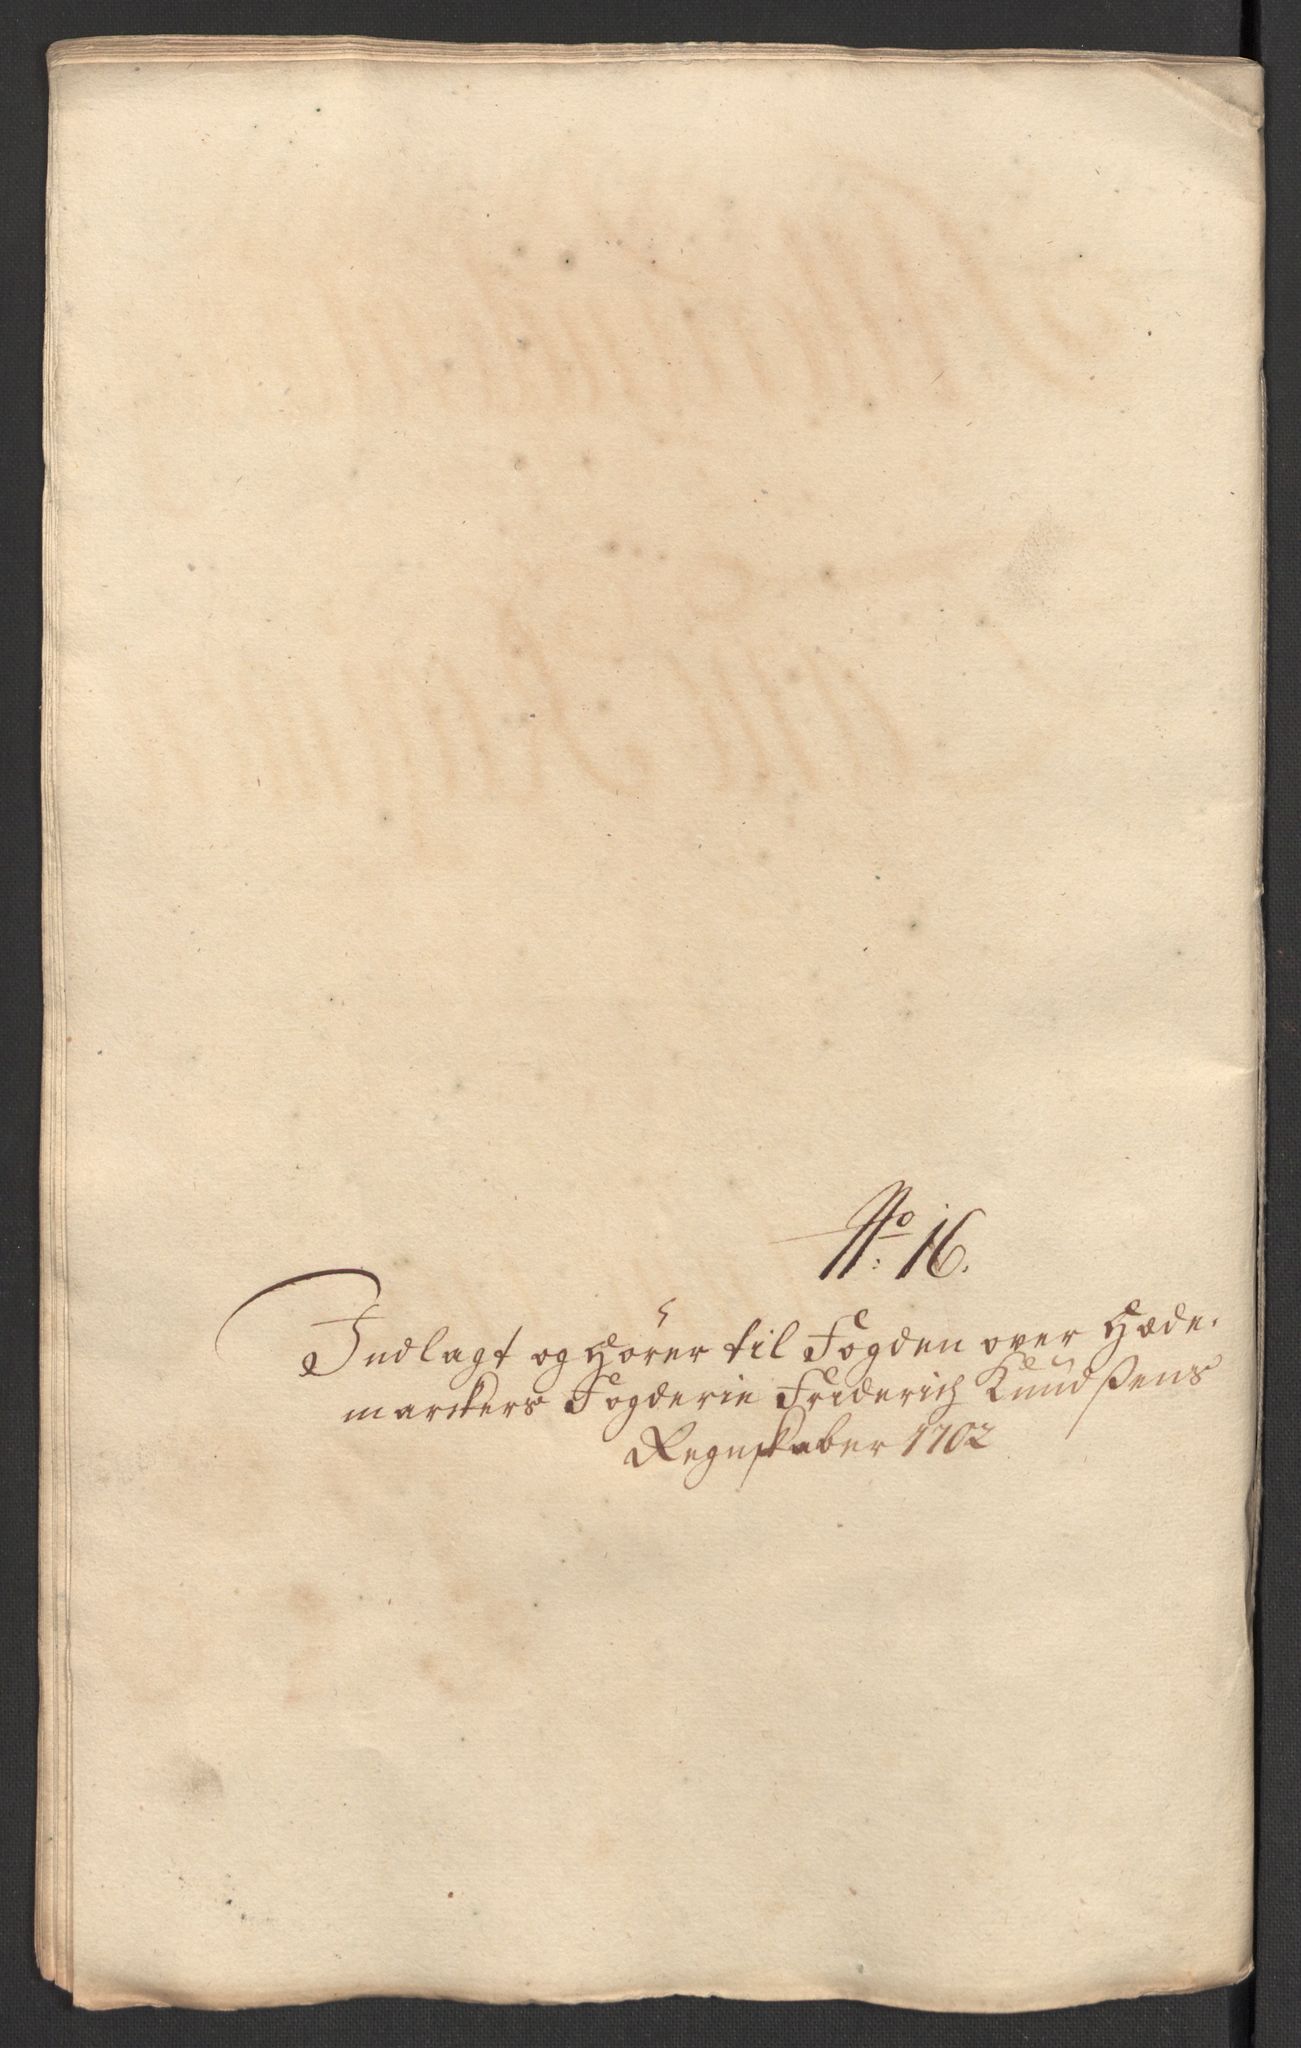 No: 16.
Indlagt og hörer til Fogden over Hæde-
marckers Fogderie Friderich Knudßens
Regnskaber 1702